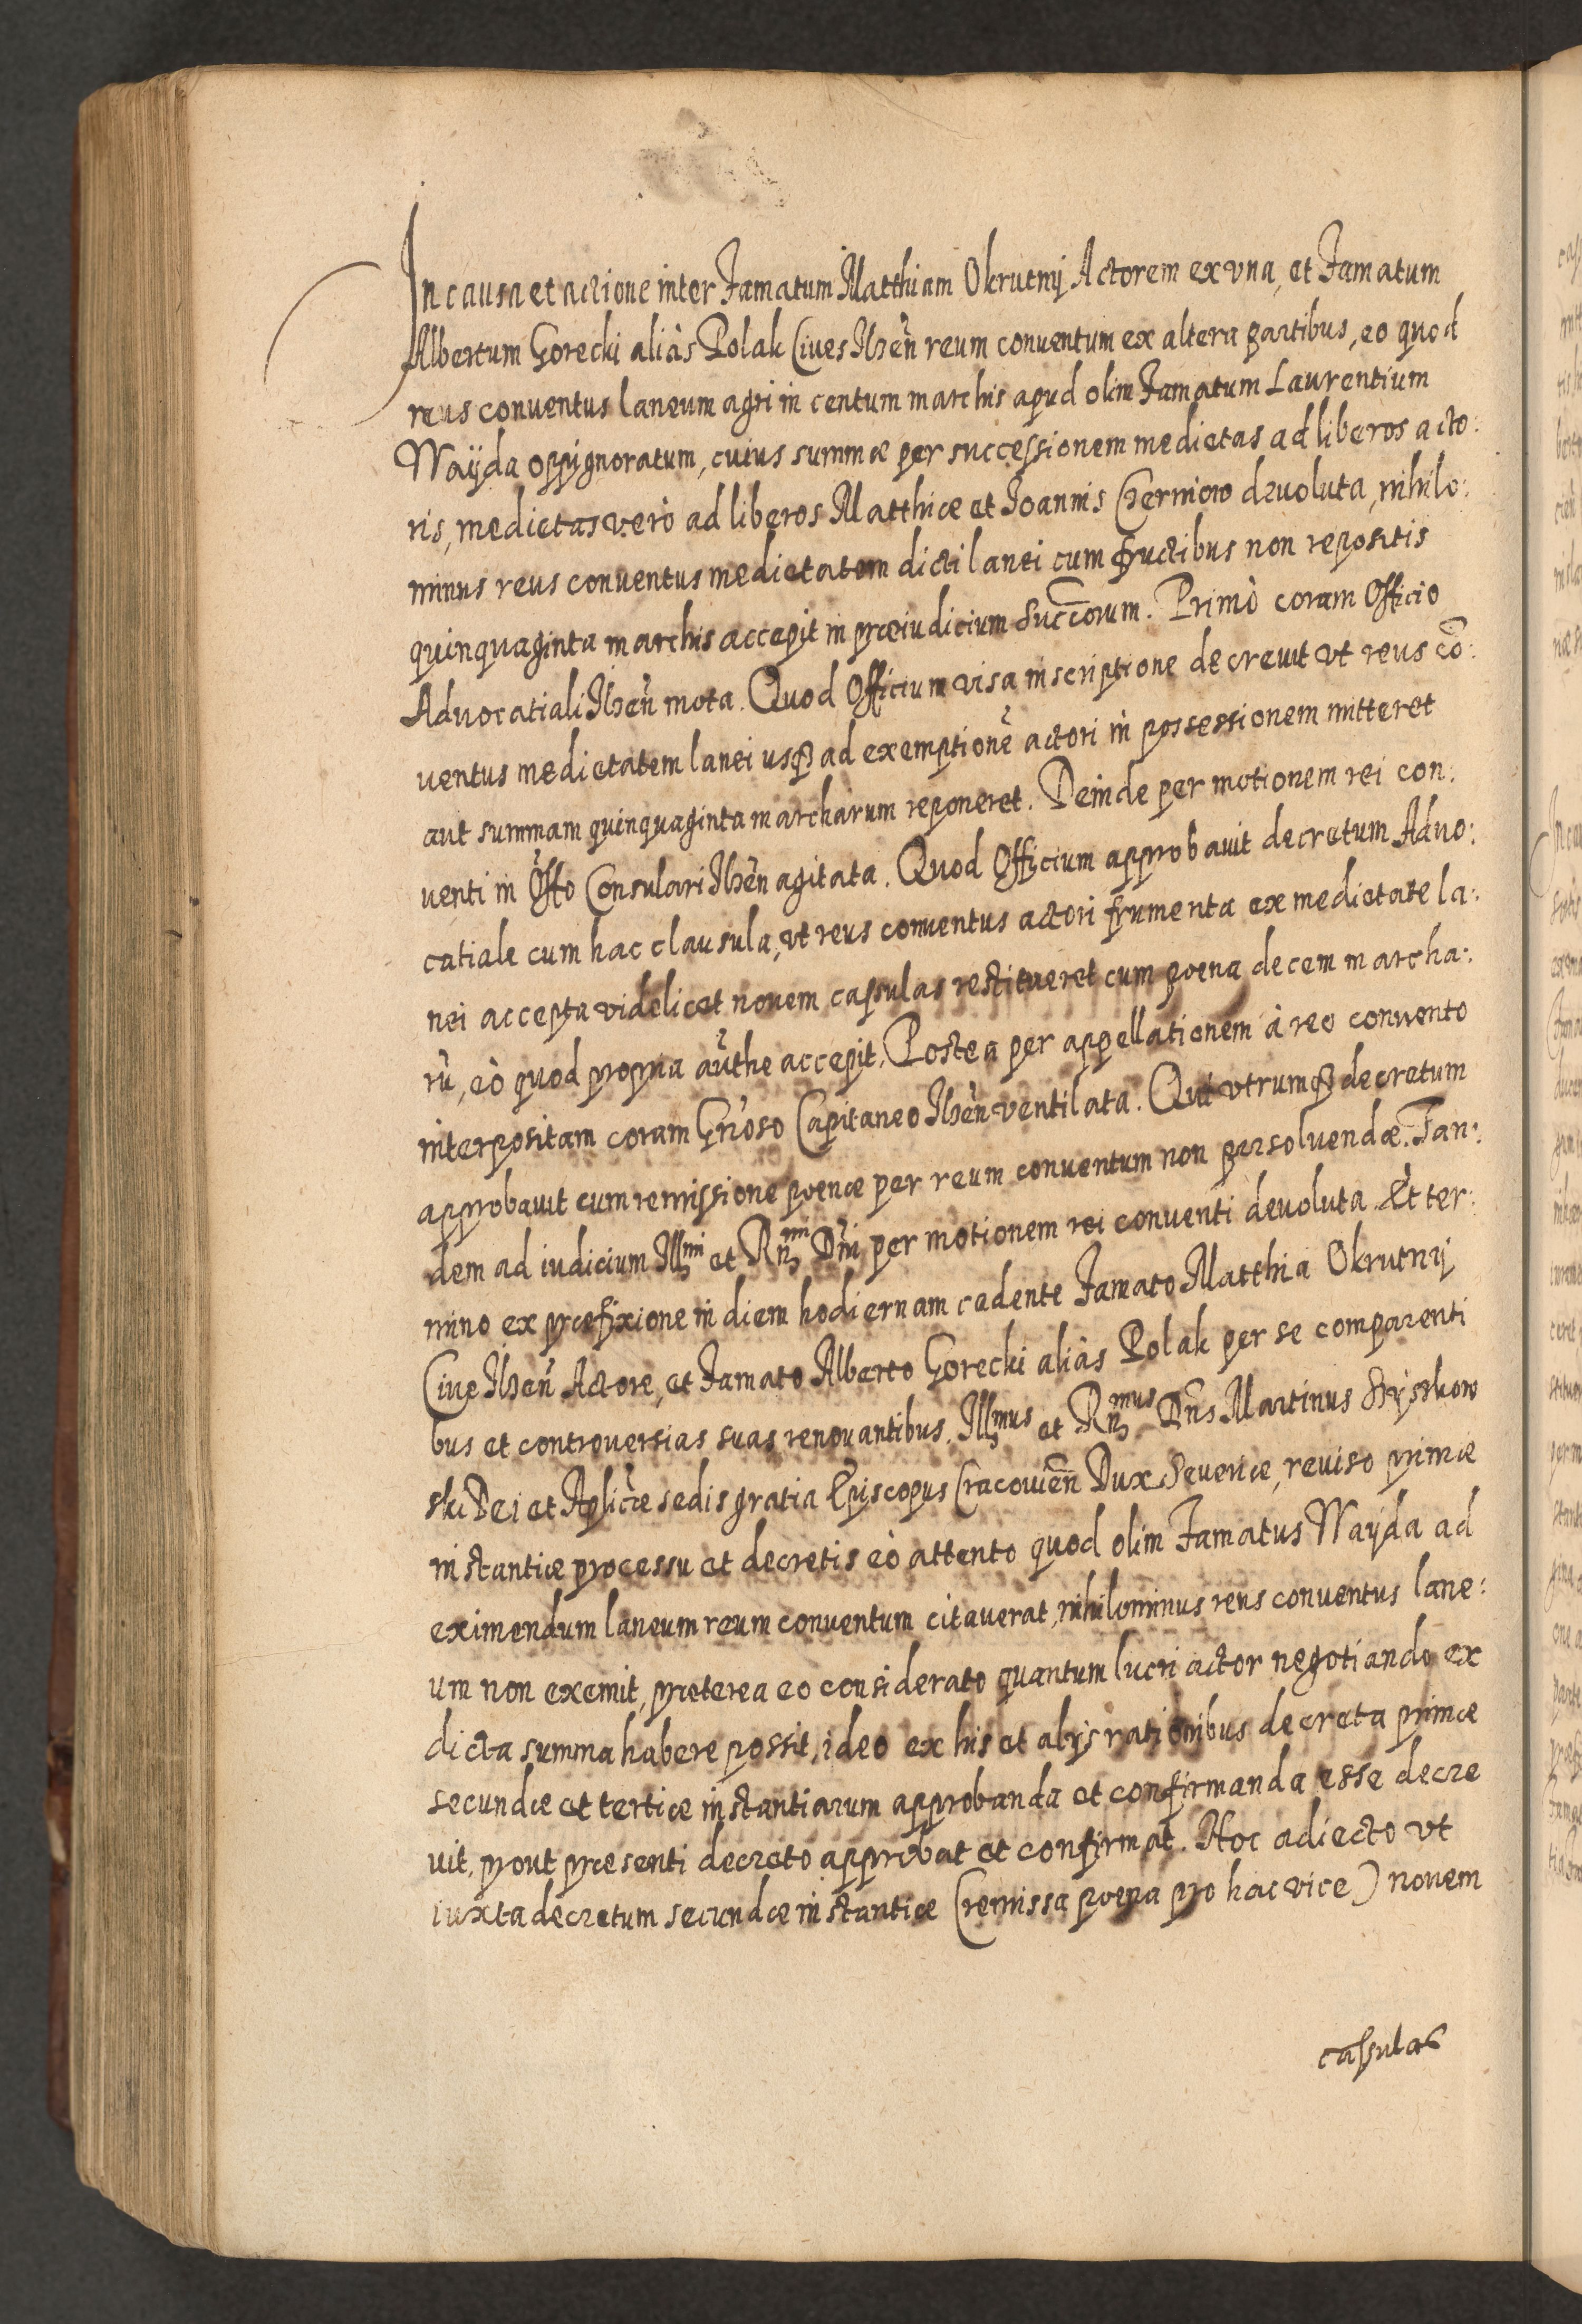 In causa et actione inter Famatum Matthiam Okrutnij Actorem ex vna, et Famatum
Albertum Gorecki aliàs Polak Ciues Ilzen̄ reum conuentum ex altera partibus, eo quod
reus conuentus laneum agri in centum marchis apud olim Famatum Laurentium
Wayda oppignoratum, cuius summæ per successionem medietas ad liberos acto:
ris, medietas verò ad liberos Matthiæ et Joannis Czerniow deuoluta, nihilo:
minus reus conuentus medietatem dicti lanei cum fructibus non repositis
quinquaginta marchis accepit in præiudicium Succorum. Primò coram Officio
Aduocatiali Ilzen̄ mota. Quod Officium visa inscriptione decreuit vt reus cō:
uentus medietatem lanei usqȝ ad exemptionē actori in possessionem mitteret
aut summam quinquaginta marcharum reponeret. Deinde per motionem rei con:
uenti in Offo Consulari Ilzen̄ agitata. Quod Officium approbauit decretum Aduo:
catiale cum hac clausula, vt reus conuentus actori frumenta ex medietate la:
nei accepta videlicet nouem capsulas restitueret cum pœna decem marcha:
rū, eò quod propria authe accepit. Postea per appellationem à reo conuento
interpositam coram Gn̄oso Capitaneo Ilzen̄ ventilata. Qui vtrumqȝ decretum
approbauit cum remissione pœnæ per reum conuentum non persoluendæ. Tan:
dem ad iudicium Illmi et Rn̄mi Dn̄i per motionem rei conuenti deuoluta. Et ter:
mino ex præfixione in diem hodiernam cadente Famato Matthia Okrutnij
Ciue Ilzen̄ Actore, et Famato Alberto Gorecki aliàs Polak per se comparenti
bus et controuersias suas renouantibus. Illmus et Rn̄mus Dn̄s Martinus Szyszkow
ski Dei et Aplicæ sedis gratia Ep̄iscopus Cracouien̄ Dux Seueriæ, reuiso primæ
instantiæ processu et decretis eò attento quod olim Famatus Wayda ad
eximendum laneum reum conuentum citauerat, nihilominus reus conuentus lane:
um non exemit, præterea eo considerato quantum lucri actor negotiando ex
dicta summa habere possit, ideo ex his et alijs rationibus decreta primæ
secundæ et tertiæ instantiarum approbanda et confirmanda esse decre
uit, prout præsenti decreto approbat et confirmat. Hoc adiecto vt
iuxta decretum secundæ instantiæ (remissa pœna pro hac vice) nouem
cassulas